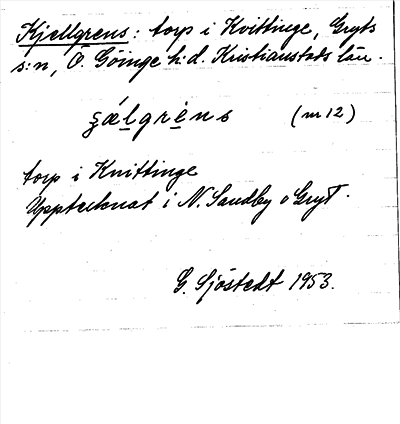 Kjellgrens: torp i Kvittinge, Gryts
s:n, Ö. Göinge h:d. Kristianstads län.
ʂælgrèns (nr 12)
torp i Knittinge
Upptecknat i N. Sandby o Gryt.
G. Sjöstedt 1953.